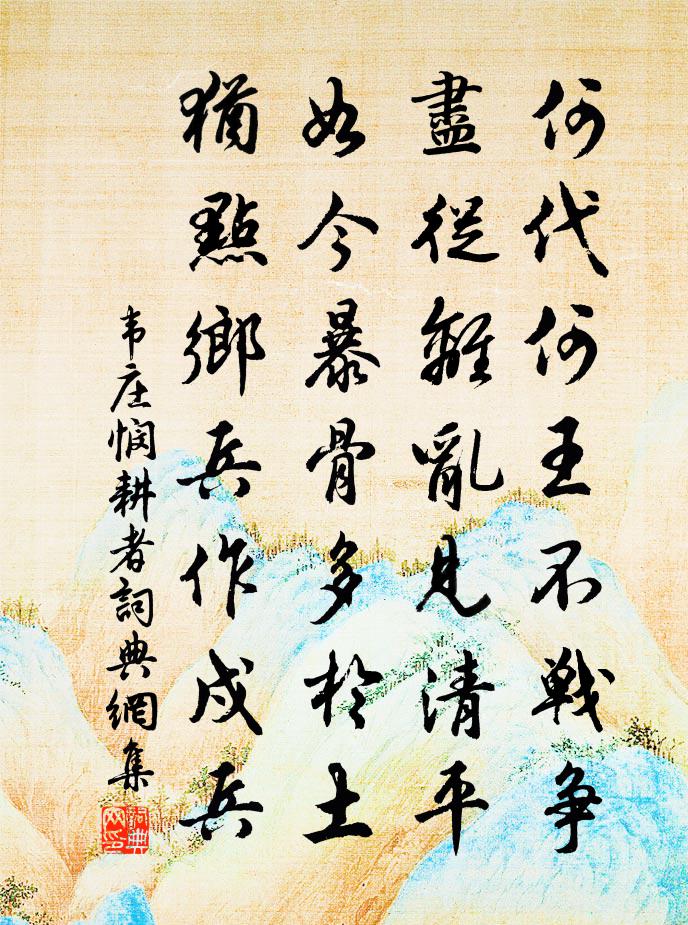 何代何王不戰爭
盡從離亂見清平
如今暴骨多於土
猶點鄉兵作戍兵
韦庄悯耕者詞典網集
詞典网印